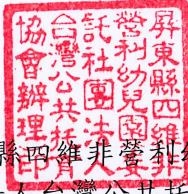 屏東縣四維非
營利幼兒園
託社團法人
台灣公共托育
協會辦理印
縣四維非營利幼